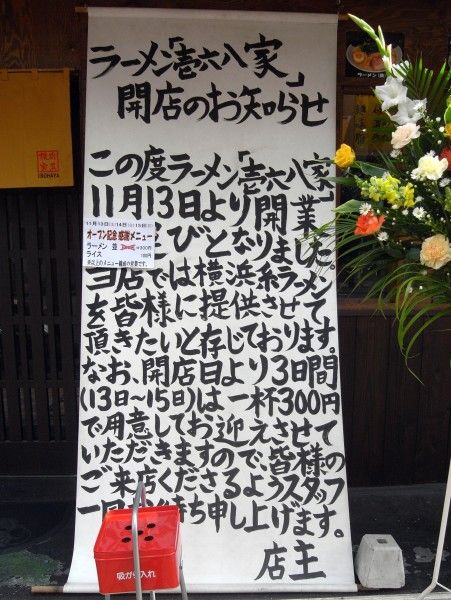 ラーメン「壱六八家」
開店のお知らせ
この度ラーメン「壱六八家」
11月13日より開業
びとなりました。
当店では横浜系ラーメン
を皆様に提供させて
頂きたいと存じております。
なお、開店日より3日間
(13日~15日)は一杯300円
で用意してお迎えさせて
いただきますので、皆様の
ご来店くださるようスタッフ
一同 待ち申し上げます。
店主
11月13日 14日 15日
オープン記念 感謝メニュー
ラーメン 並 300円
ライス 100円
IROHAYA
ラーメン
吸がら入れ